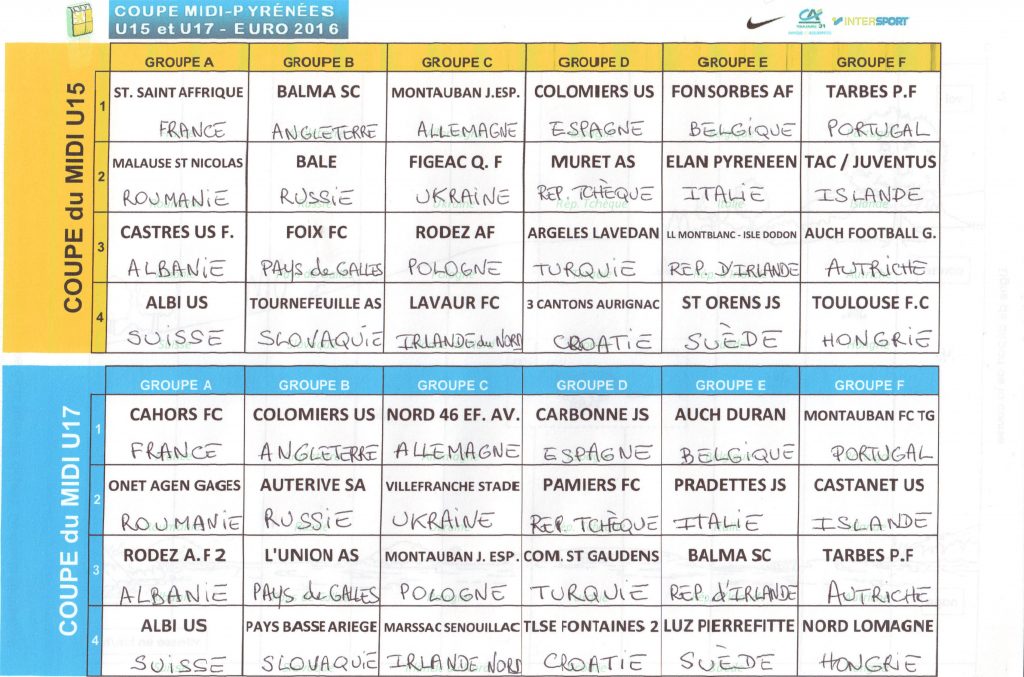 COUPE MIDI-PYRÉNÉES
U15 et U17 - EURO 2016
INTERSPORT
COUPE du MIDI U15
GROUPE A GROUPE B GROUPE C GROUPE D GROUPE E GROUPE F
1 ST. SAINT AFFRIQUE BALMA SC MONTAUBAN J.ESP. COLOMIERS US FONSORBES AF TARBES P.F
FRANCE ANGLETERRE ALLEMAGNE ESPAGNE BELGIQUE PORTUGAL
2 MALAUSE ST NICOLAS BALE FIGEAC Q. F MURET AS ELAN PYRENEEN TAC / JUVENTUS
ROUMANIE RUSSIE UKRAINE REP. TCHÈQUE ITALIE ISLANDE
3 CASTRES US F. FOIX FC RODEZ AF ARGELES LAVEDAN LL MONTBLANC - ISLE DODON AUCH FOOTBALL G.
ALBANIE PAYS de GALLES POLOGNE TURQUIE REP. D'IRLANDE AUTRICHE
4 ALBI US TOURNEFEUILLE AS LAVAUR FC 3 CANTONS AURIGNAC ST ORENS JS TOULOUSE F.C
SUISSE SLOVAQUIE IRLANDE du NORD CROATIE SUÈDE HONGRIE
COUPE du MIDI U17
GROUPE A GROUPE B GROUPE C GROUPE D GROUPE E GROUPE F
1 CAHORS FC COLOMIERS US NORD 46 EF. AV. CARBONNE JS AUCH DURAN MONTAUBAN FC TG
FRANCE ANGLETERRE ALLEMAGNE ESPAGNE BELGIQUE PORTUGAL
2 ONET AGEN GAGES AUTERIVE SA VILLEFRANCHE STADE PAMIERS FC PRADETTES JS CASTANET US
ROUMANIE RUSSIE UKRAINE REP. TCHÈQUE ITALIE ISLANDE
3 RODEZ A.F 2 L'UNION AS MONTAUBAN J. ESP. COM. ST GAUDENS BALMA SC TARBES P.F
ALBANIE PAYS de GALLES POLOGNE TURQUIE REP. d'IRLANDE AUTRICHE
4 ALBI US PAYS BASSE ARIEGE MARSSAC SENOUILLAC TLSE FONTAINES 2 LUZ PIERREFITTE NORD LOMAGNE
SUISSE SLOVAQUIE IRLANDE NORD CROATIE SUÈDE HONGRIE